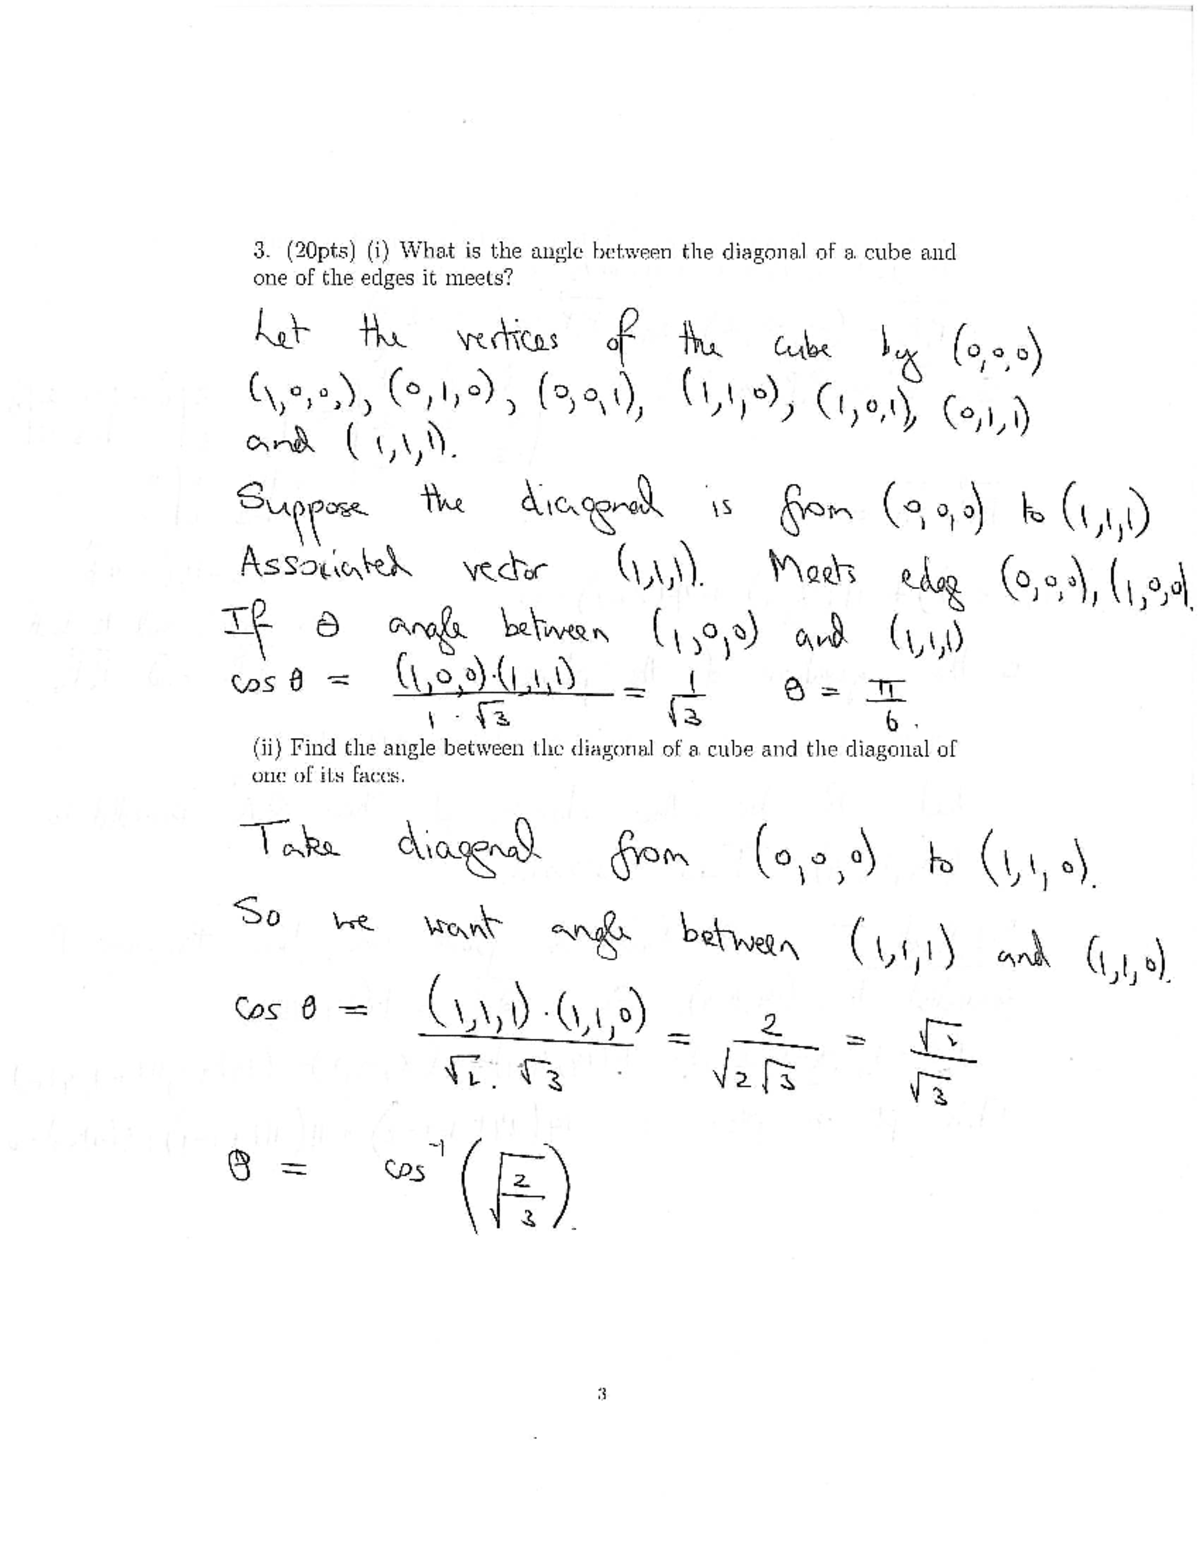 3. (20pts) (i) What is the angle between the diagonal of a cube and
one of the edges it meets?
Let the vertices of the cube by (0,0,0)
(1,0,0), (0,1,0), (0,0,1), (1,1,0), (1,0,1), (0,1,1)
and (1,1,1).
Suppose the diagonal is from (0,0,0) to (1,1,1)
Associated vector (1,1,1). Meets edge (0,0,0), (1,0,0).
If θ angle between (1,0,0) and (1,1,1)
cos θ = (1,0,0)·(1,1,1) / 1·√3 = 1/√3 θ = π/6.
(ii) Find the angle between the diagonal of a cube and the diagonal of
one of its faces.
Take diagonal from (0,0,0) to (1,1,0).
So we want angle between (1,1,1) and (1,1,0).
cos θ = (1,1,1)·(1,1,0) / √2·√3 = 2/√2√3 = √2/√3
θ = cos⁻¹(√(2/3)).
3